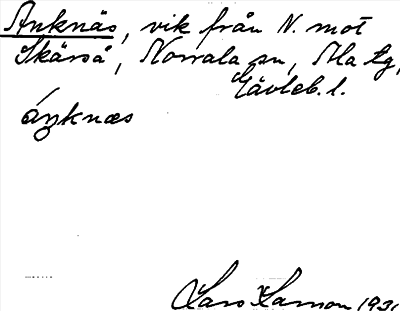 Anknäs, vik från N. mot
Skärså, Norrala sn, Ala tg,
Gävleb. l.
áŋknæs
Lars Larsson 1931